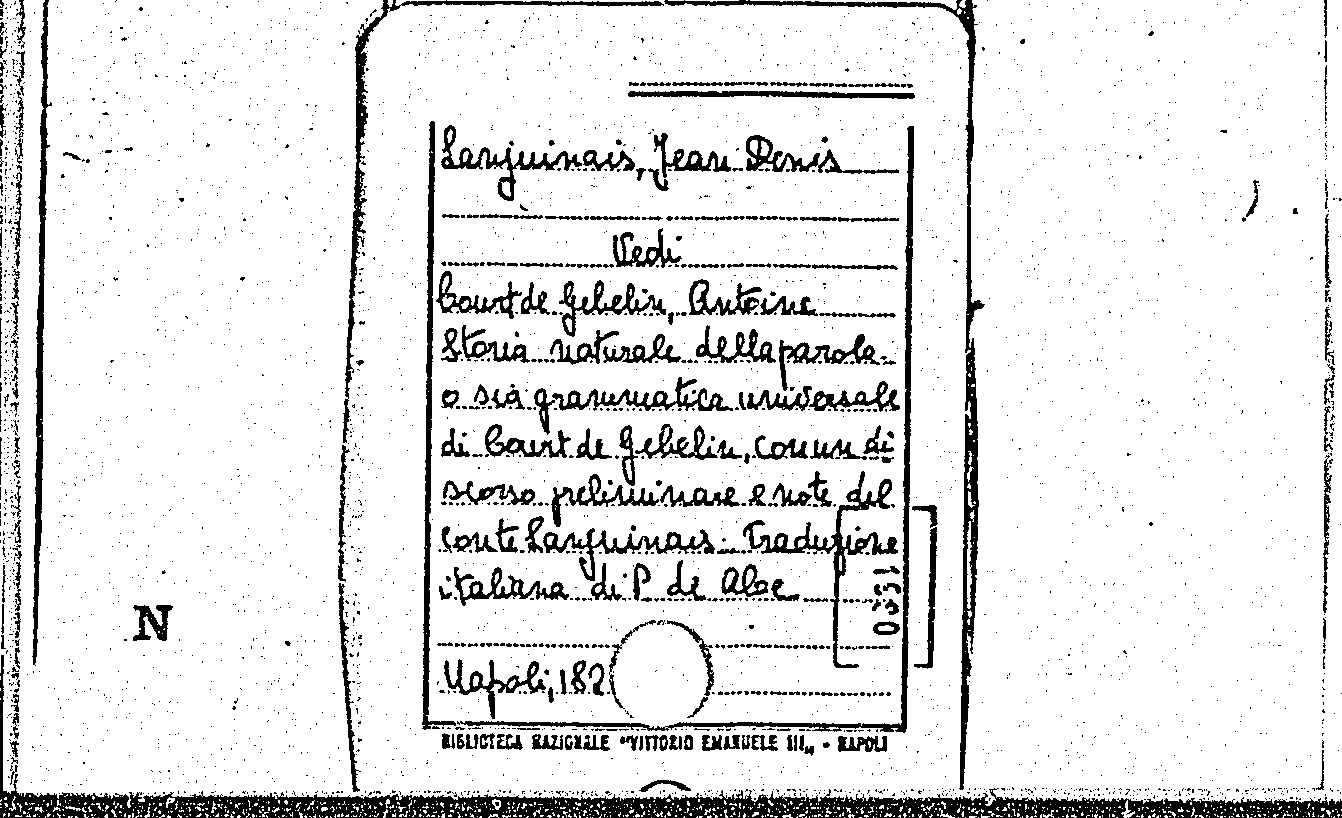 Lanjuinais, Jean Denis
Vedi
Court de Gebelin, Antoine
Storia naturale della parola
o sia grammatica universale
di Court de Gebelin, con un di
scorso preliminare e note del
conte Lanjuinais. Traduzione
italiana di P de Aloe
Napoli, 182
0331
N
BIBLIOTECA NAZIONALE "VITTORIO EMANUELE III" - NAPOLI